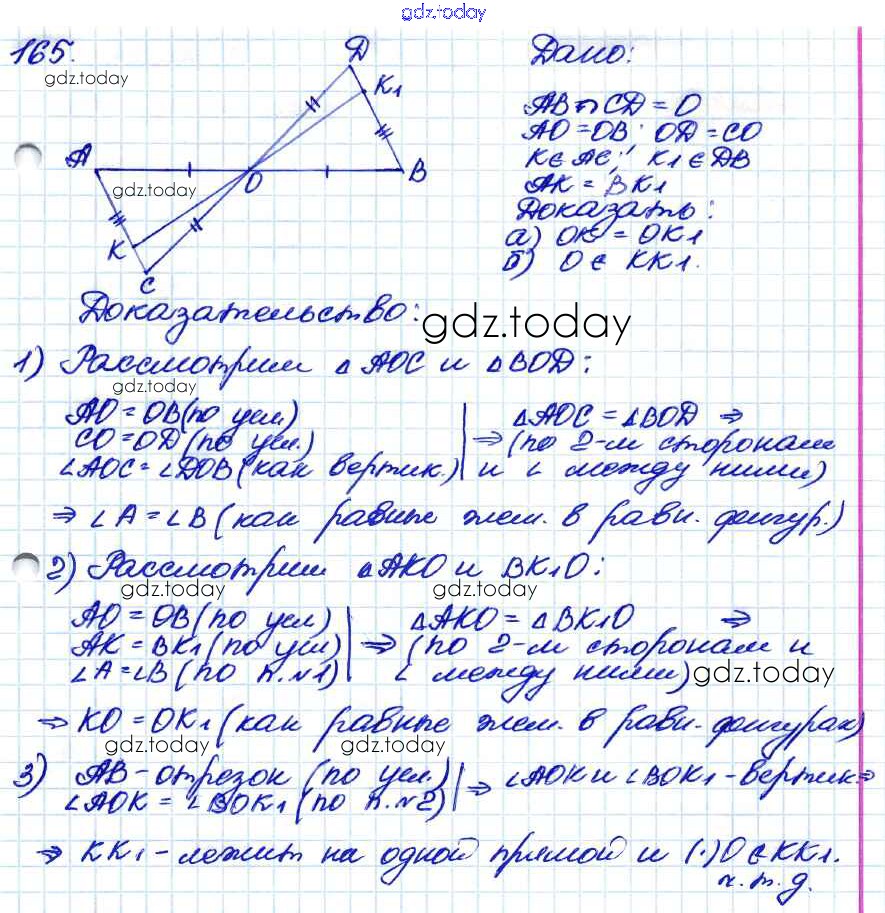 gdz.today
165.
gdz.today
D
K1
A
O
B
gdz.today
K
C
Дано:
AB ∩ CD = O
AO = OB; OD = CO
K ∈ AC; K1 ∈ DB
AK = BK1
Доказать:
а) OK = OK1
б) O ∈ KK1.
Доказательство:
gdz.today
1) Рассмотрим △AOC и △BOD:
gdz.today
AO = OB (по усл.)
CO = OD (по усл.)
∠AOC = ∠DOB (как вертик.)
⇒ △AOC = △BOD ⇒
(по 2-м сторонам
и ∠ между ними)
⇒ ∠A = ∠B (как равные элем. в равн. фигур.)
2) Рассмотрим △AKO и BK1O:
gdz.today
gdz.today
AO = OB (по усл)
AK = BK1 (по усл)
∠A = ∠B (по п. №1)
⇒ △AKO = △BK1O ⇒
(по 2-м сторонам и
∠ между ними)
gdz.today
⇒ KO = OK1 (как равные элем. в равн. фигурах)
gdz.today
gdz.today
3) AB - отрезок (по усл.)
∠AOK = ∠BOK1 (по п. №2)
⇒ ∠AOK и ∠BOK1 - вертик ⇒
⇒ KK1 - лежит на одной прямой и (·) O ∈ KK1.
ч. т. д.